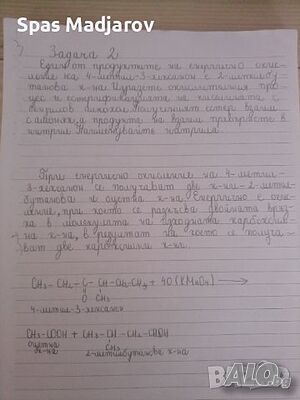 Spas Madjarov
Задача 2
Един от продуктите на енергично окис-
ление на 4-метил-3-хексанон е 2-метилбу-
танова к-на. Изразете окислителния про-
цес и естерификацията на киселината с
алкохол. Полученият естер взаимо
с амоняк, а продукта на взаим. превърнете в
нитрил. Наименувайте нитрила.
При енергично окисление на 4-метил-
3-хексанон се получават две к-ни - 2-метил-
бутанова и оцетна к-на. Енергично е оки-
сление, при което се разкъсва двойната връз-
ка в молекулата на
на к-на, в резултат на което се получа-
ват две карбоксилни к-ни.
CH₃ - CH₂ - C - CH - CH₂ - CH₃ + 4O (KMnO₄) →
O CH₃
4-метил-3-хексанон
CH₃-COOH + CH₃-CH-CH₂-COOH
оцетна CH₃
к-на 2-метилбутанова к-на
BALO.bg